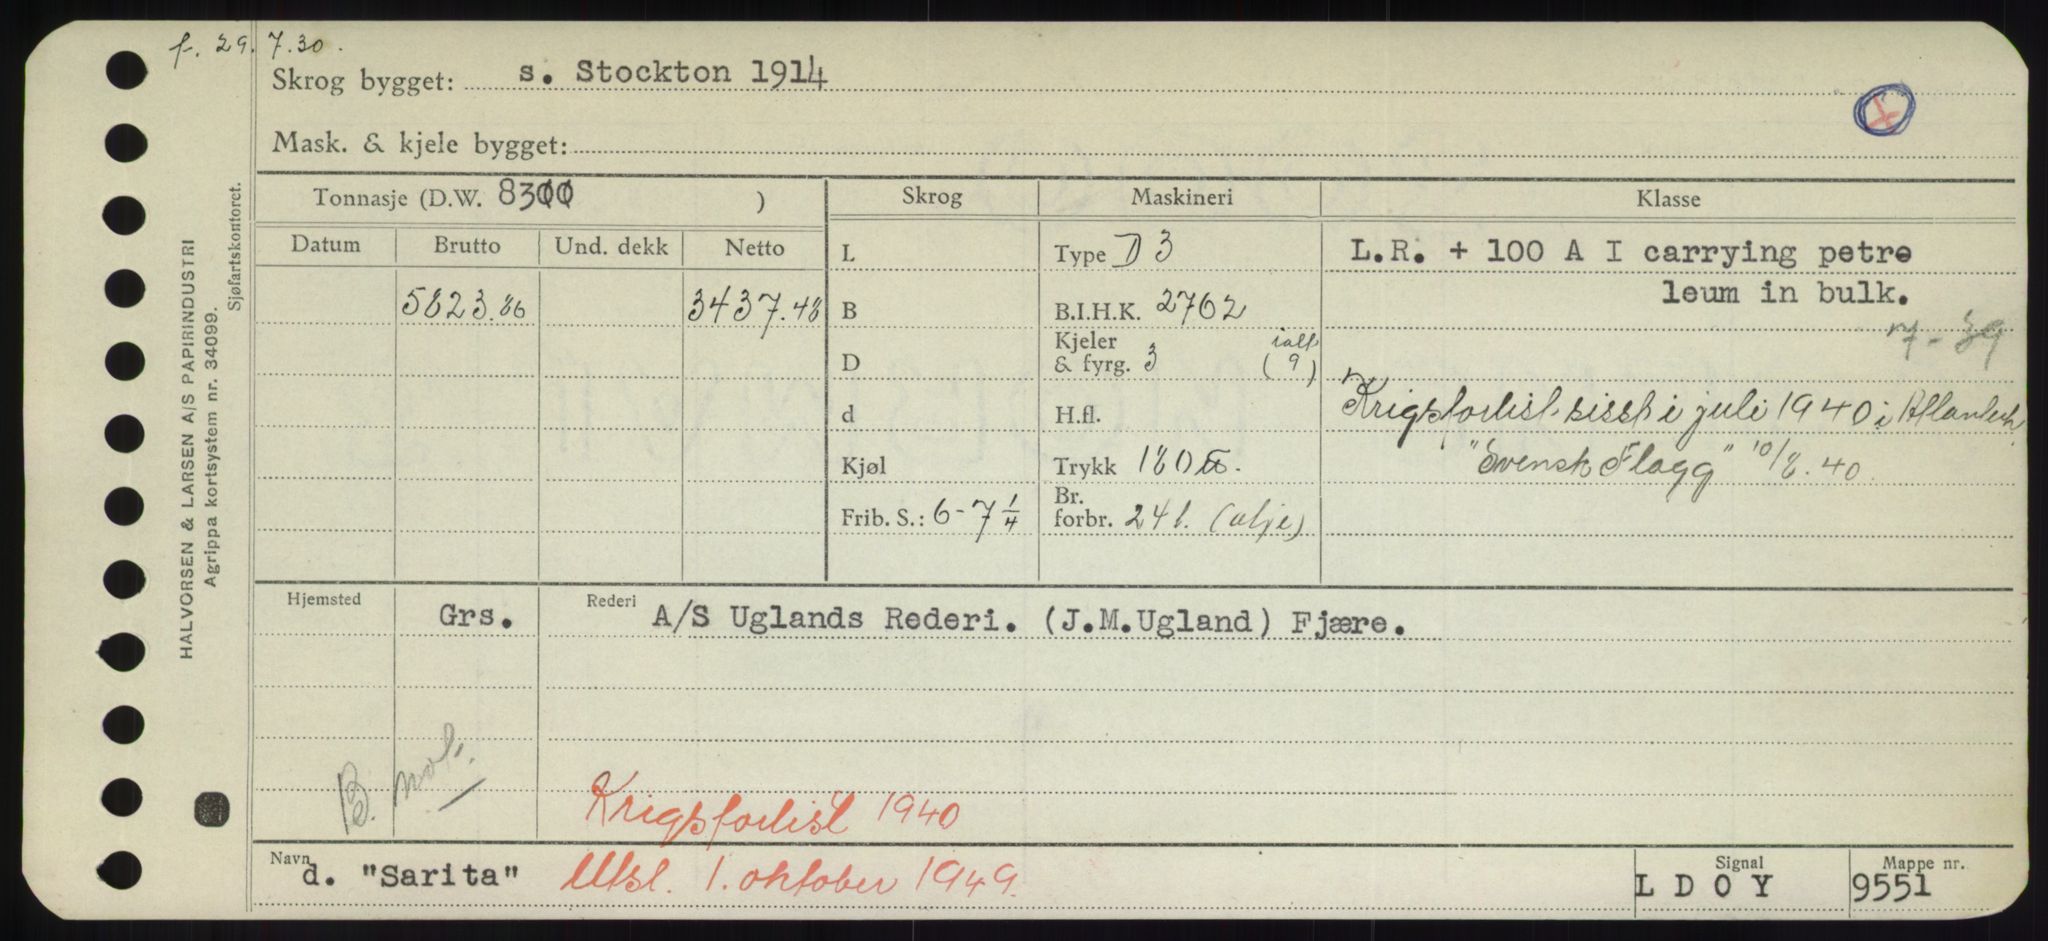 f. 29.7.30.
Skrog bygget: s. Stockton 1914
Mask. & kjele bygget:
Tonnasje (D.W. 8300 )
Skrog Maskineri Klasse
Datum Brutto Und. dekk Netto
L Type D 3 L.R. + 100 A I carrying petro
leum in bulk.
5823.86 3437.48 B B.I.H.K. 2762
7-39
D Kjeler & fyrg. 3 ialt (9)
d H.fl. Krigsforlist sist i juli 1940 i Atlanteh.
Kjøl Trykk 180 "Svensk Flagg" 10/8.40
Frib. S.: 6-7 1/4 Br. forbr. 24 t. (olje)
Hjemsted Grs. Rederi A/S Uglands Rederi. (J.M.Ugland) Fjære.
B. not.
Krigsforlist 1940
Navn d. "Sarita" Utsl. 1. oktober 1949. Signal L D O Y Mappe nr. 9551
HALVORSEN & LARSEN A/S PAPIRINDUSTRI
Agrippa kortsystem nr. 34099.
Sjøfartskontoret.